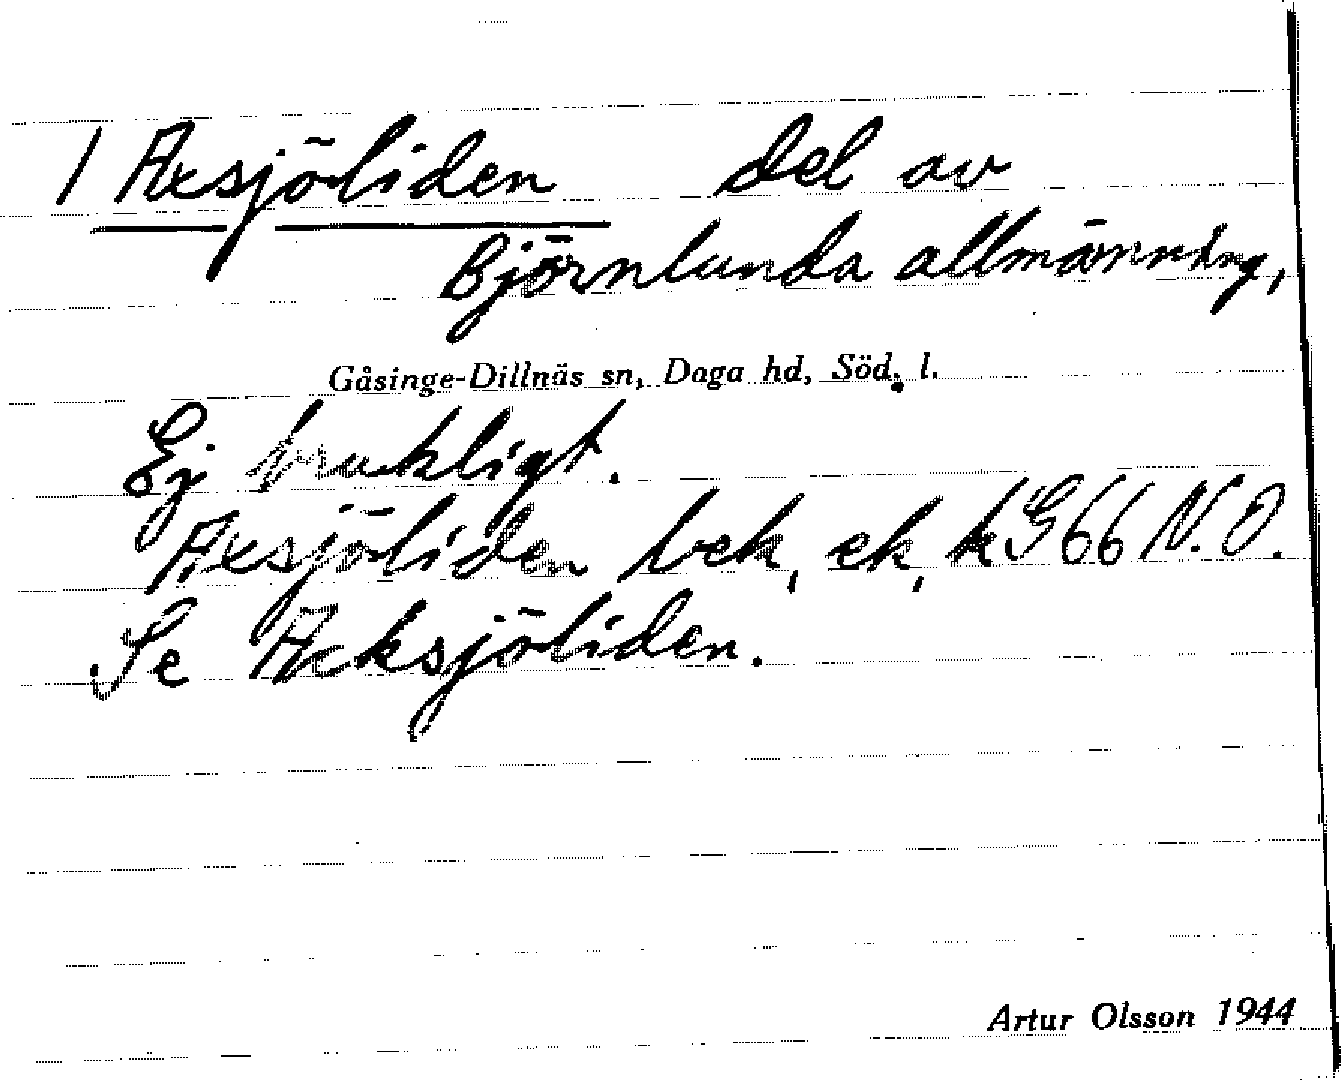 / Axsjöliden del av
Björnlunda allmänning,
Gåsinge-Dillnäs sn, Daga hd, Söd. l.
Ej brukligt.
Axsjöliden bek, ek, k G66 N.O.
Se Acksjöliden.
Artur Olsson 1944